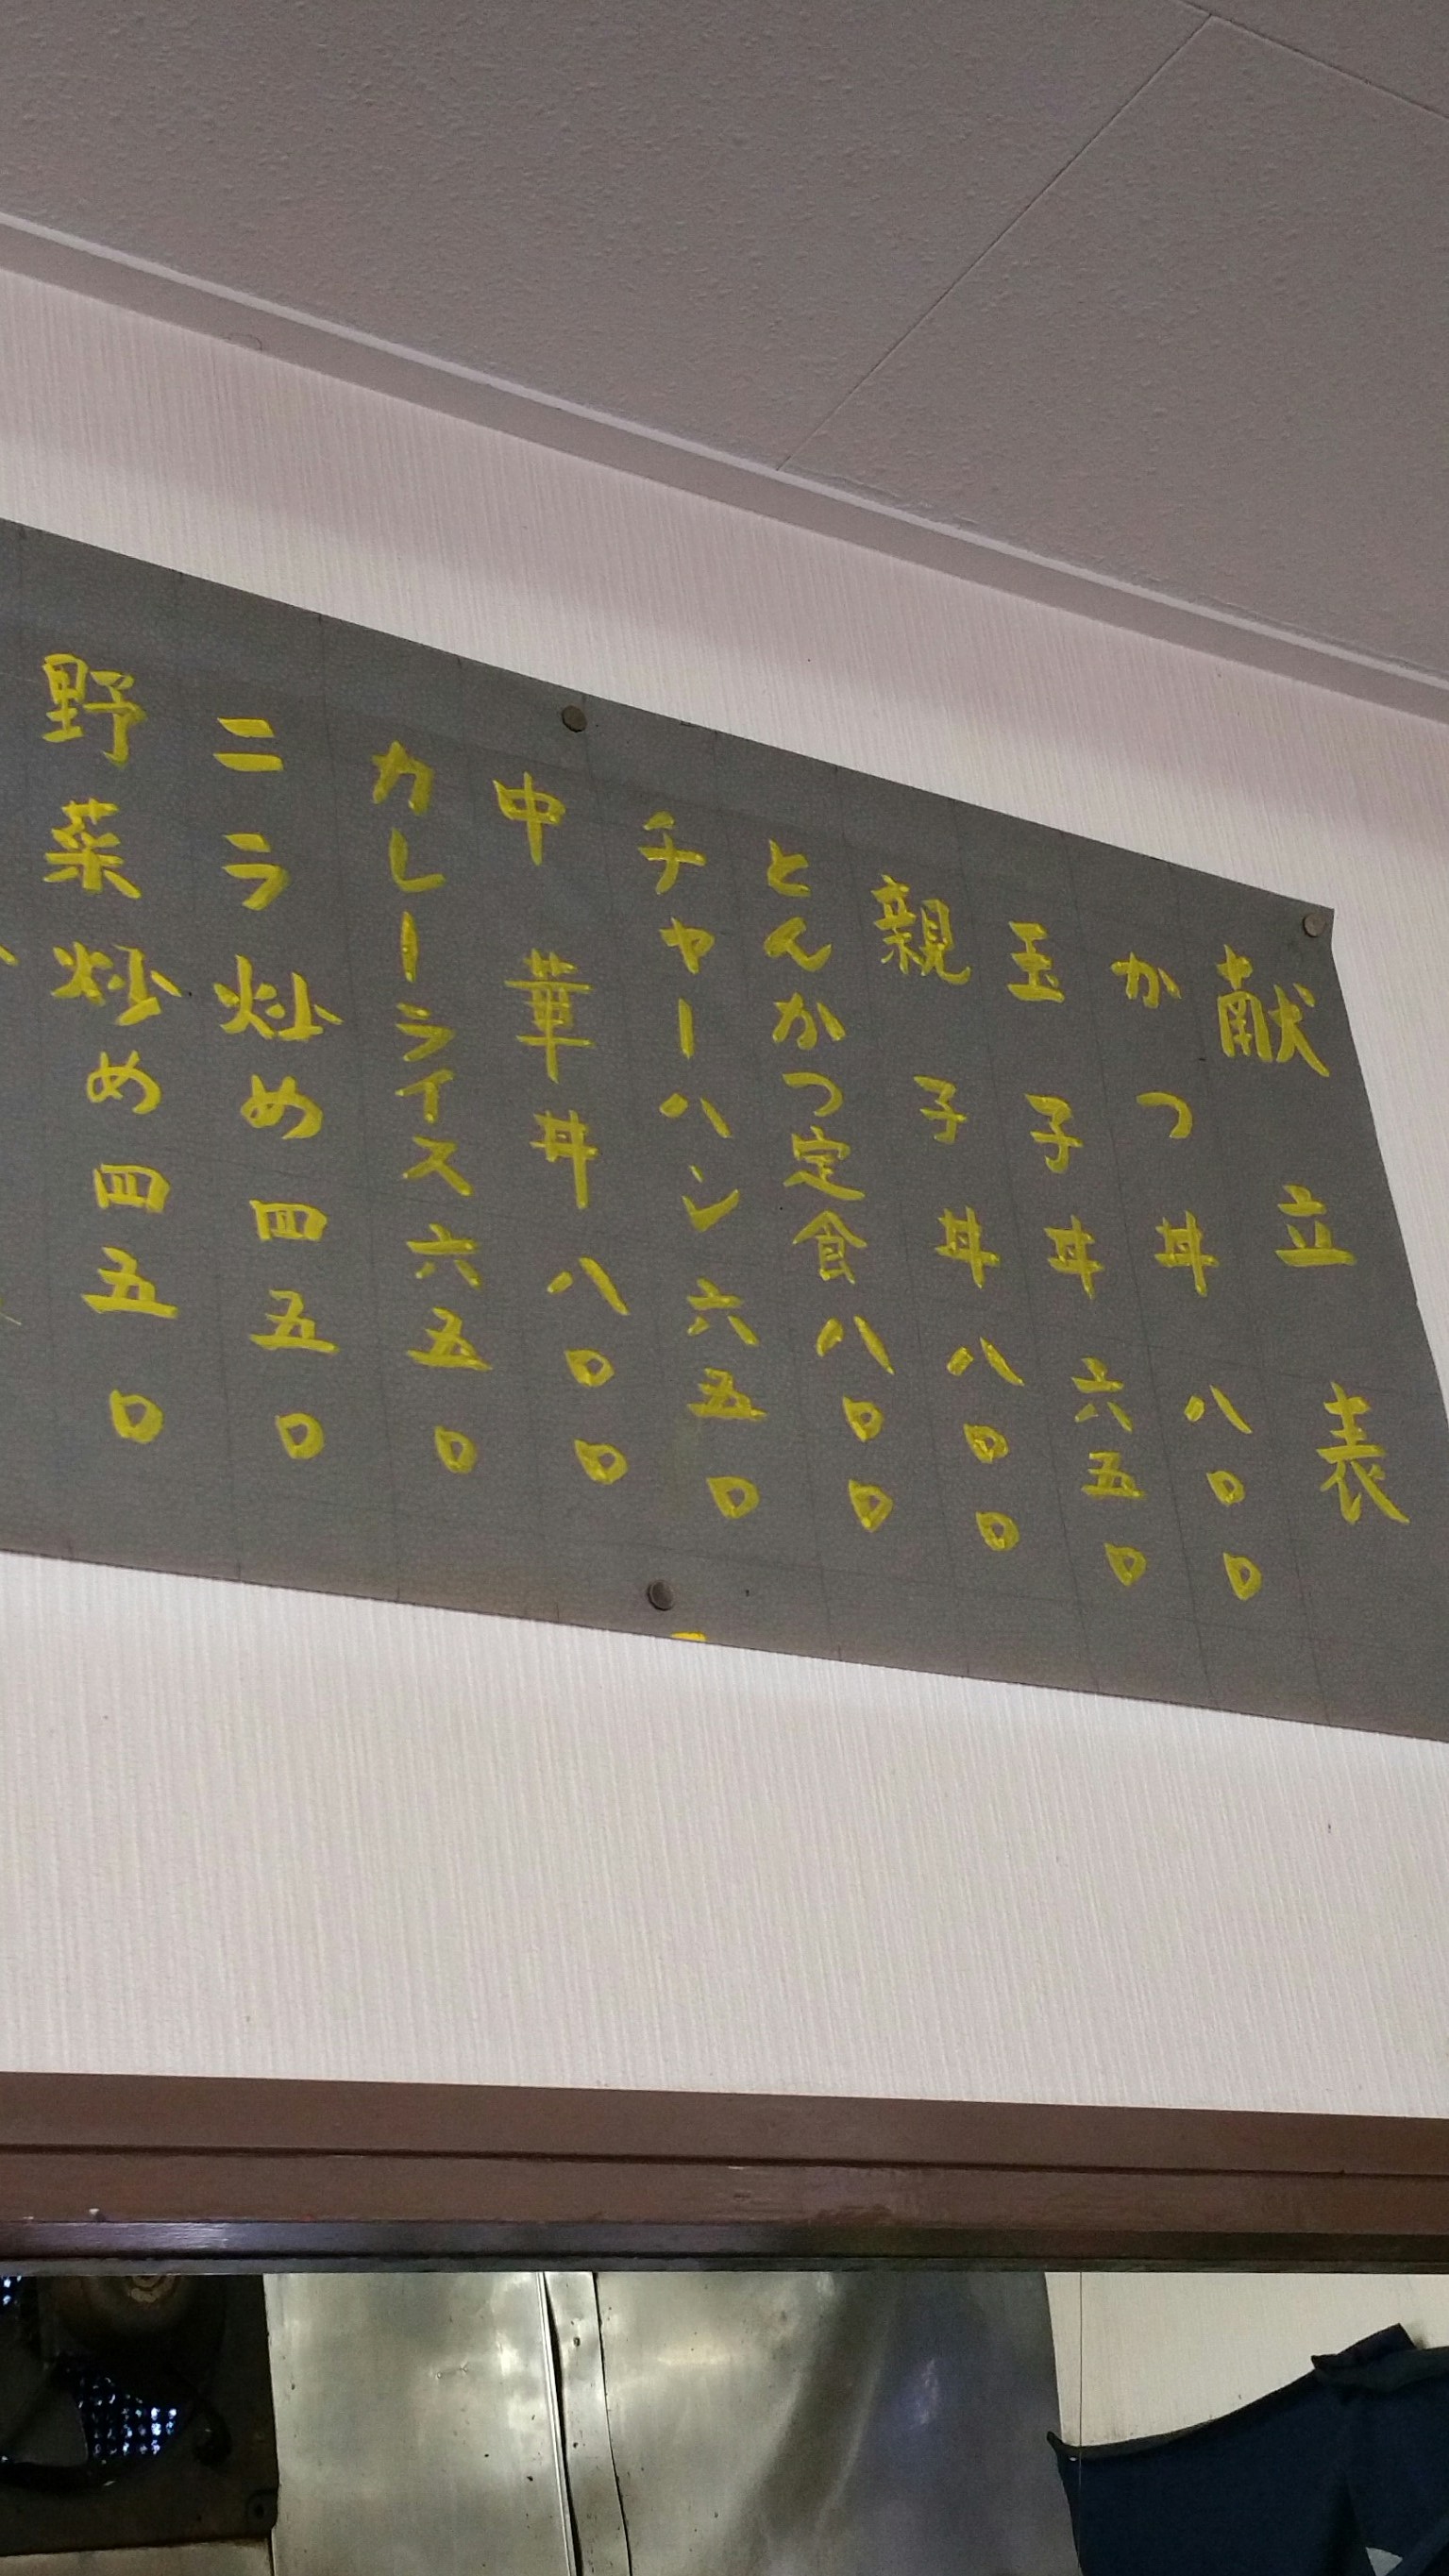 献立表
かつ丼 八〇〇
玉子丼 六五〇
親子丼 八〇〇
とんかつ定食 八〇〇
チャーハン 六五〇
中華丼 八〇〇
カレーライス 六五〇
ニラ炒め 四五〇
野菜炒め 四五〇